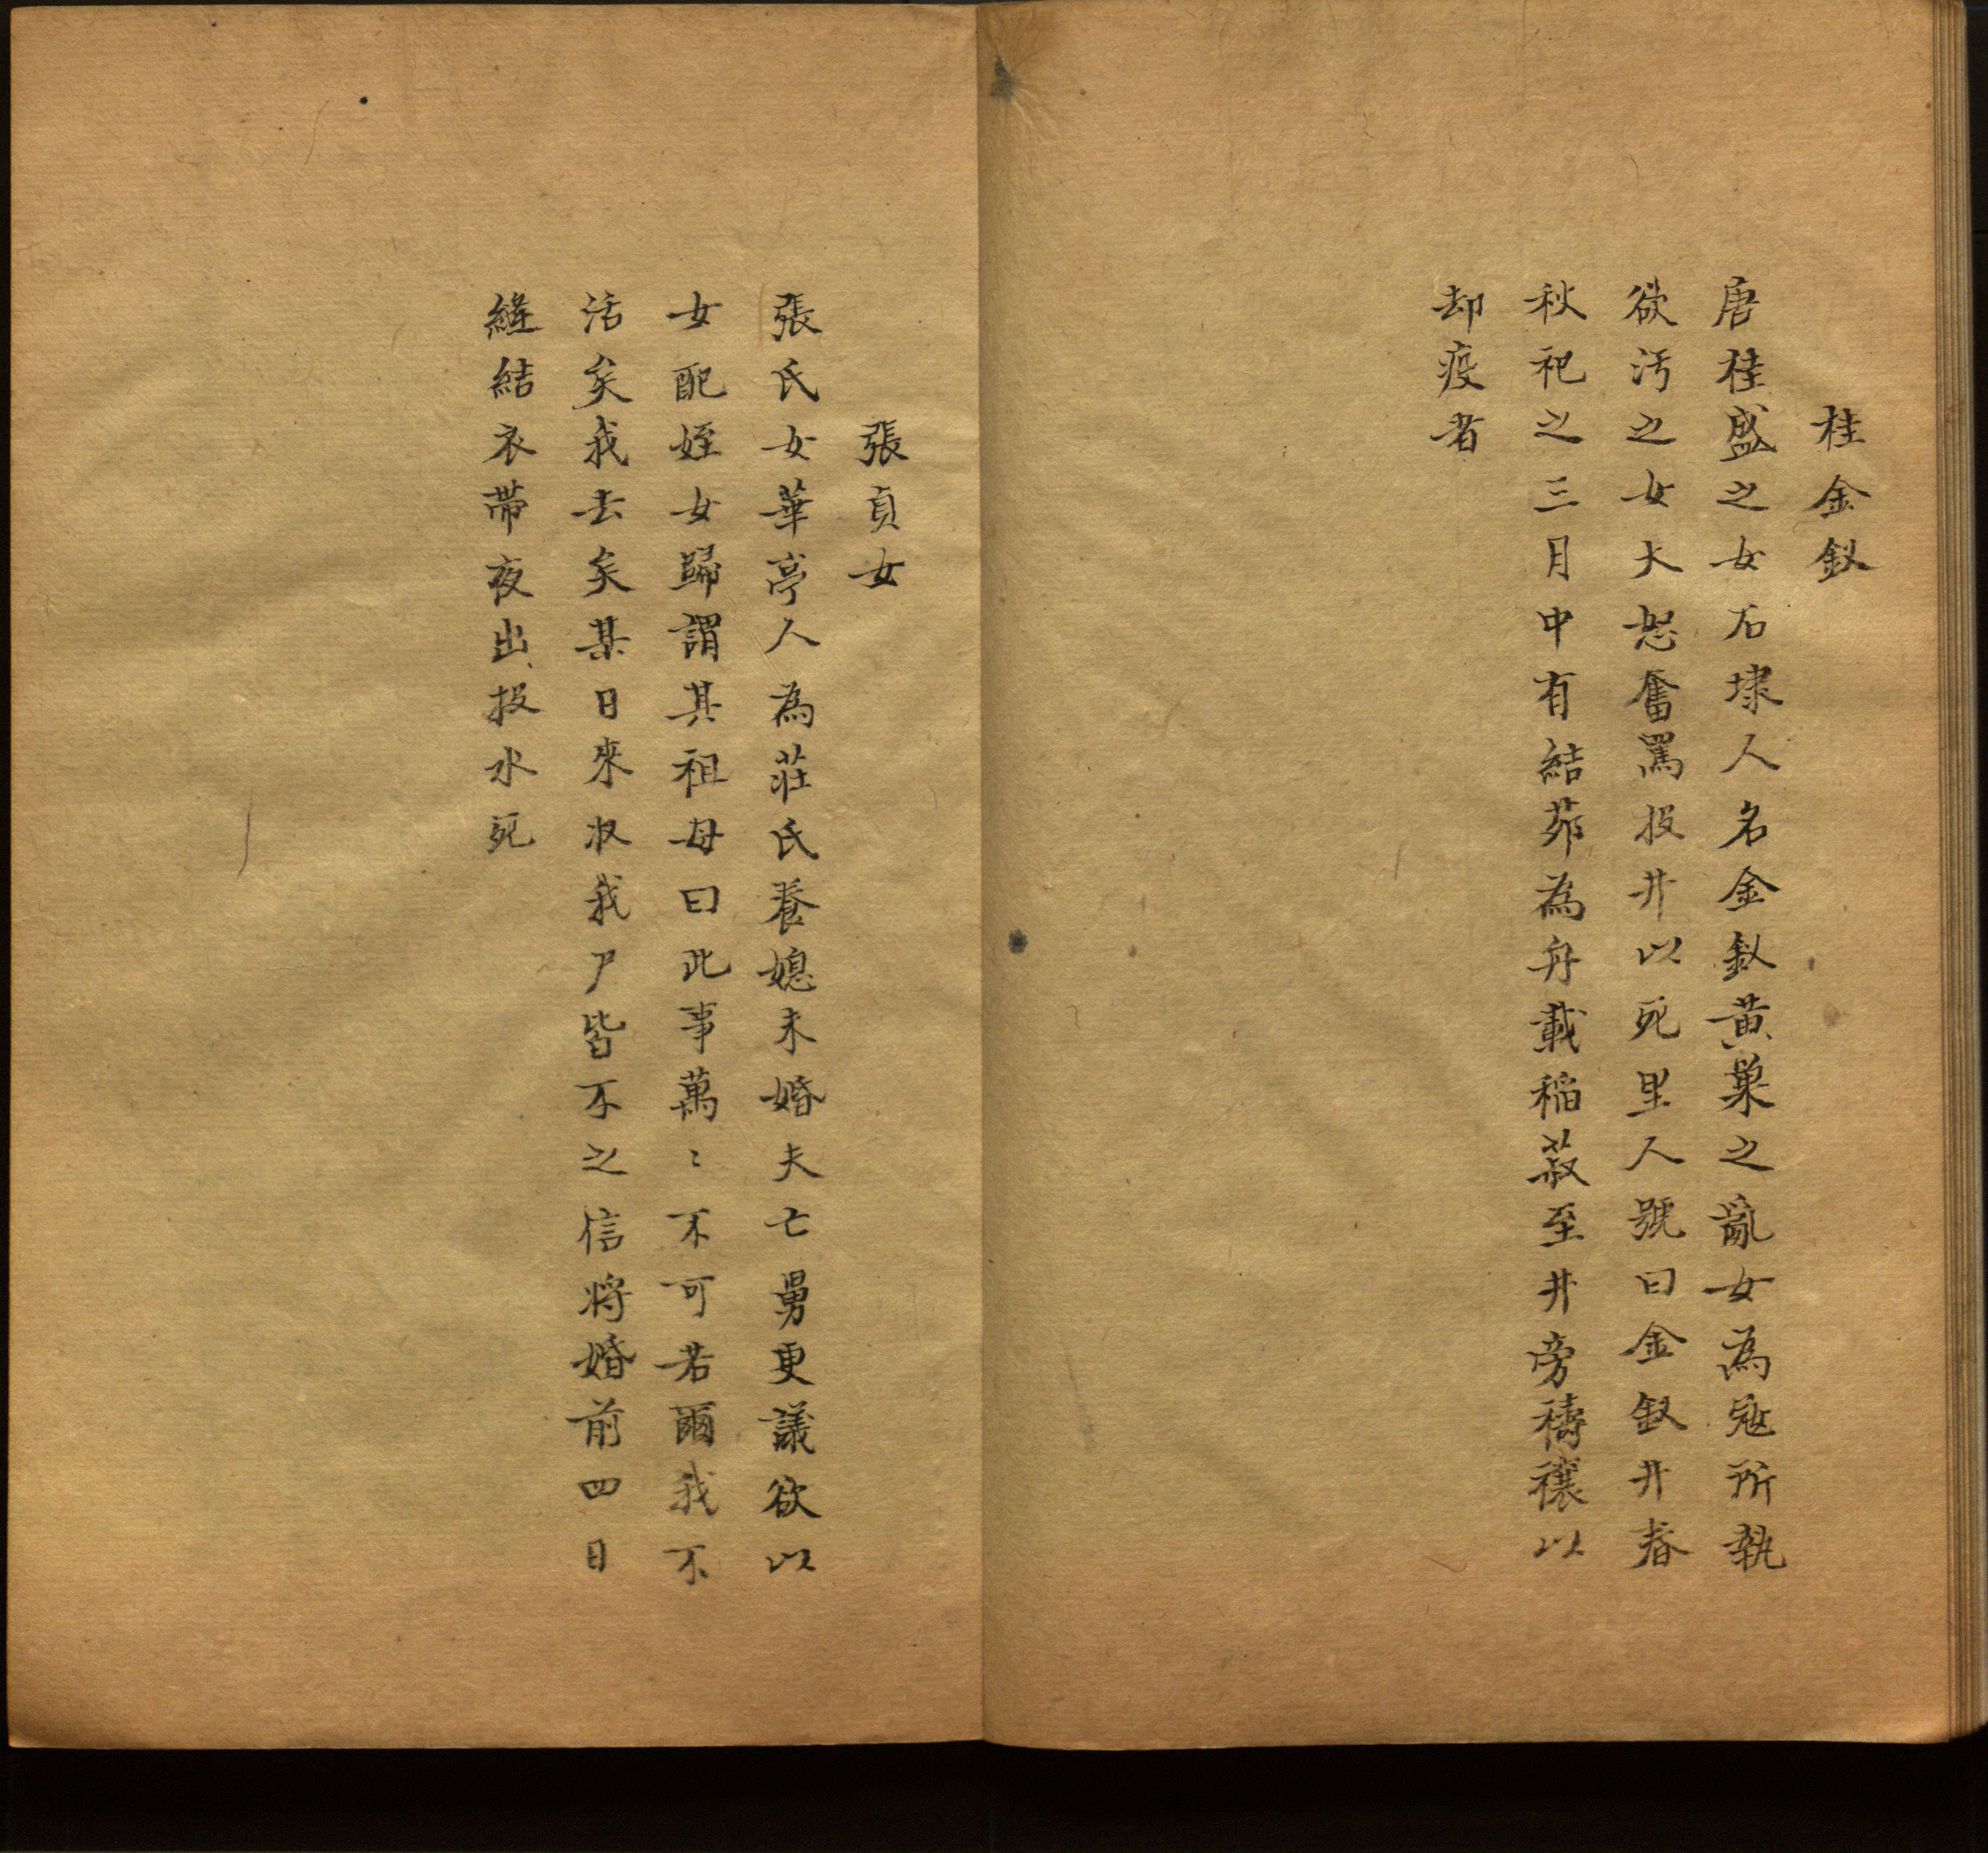 桂金釵
唐桂盛之女石埭人名金釵黄巢之亂女為寇所執
欲汚之女大怒奮罵投井以死里人號曰金釵井春
秋祀之三月中有結茆為舟載稲菽至井旁禱禳以
却疫者
張貞女
張氏女華亭人為莊氏養媳未婚夫亡舅更議欲以
女配姪女歸謂其祖母曰此事萬〻不可若爾我不
活矣我去矣某日來收我尸皆不之信將婚前四日
縫結衣帶夜出投水死